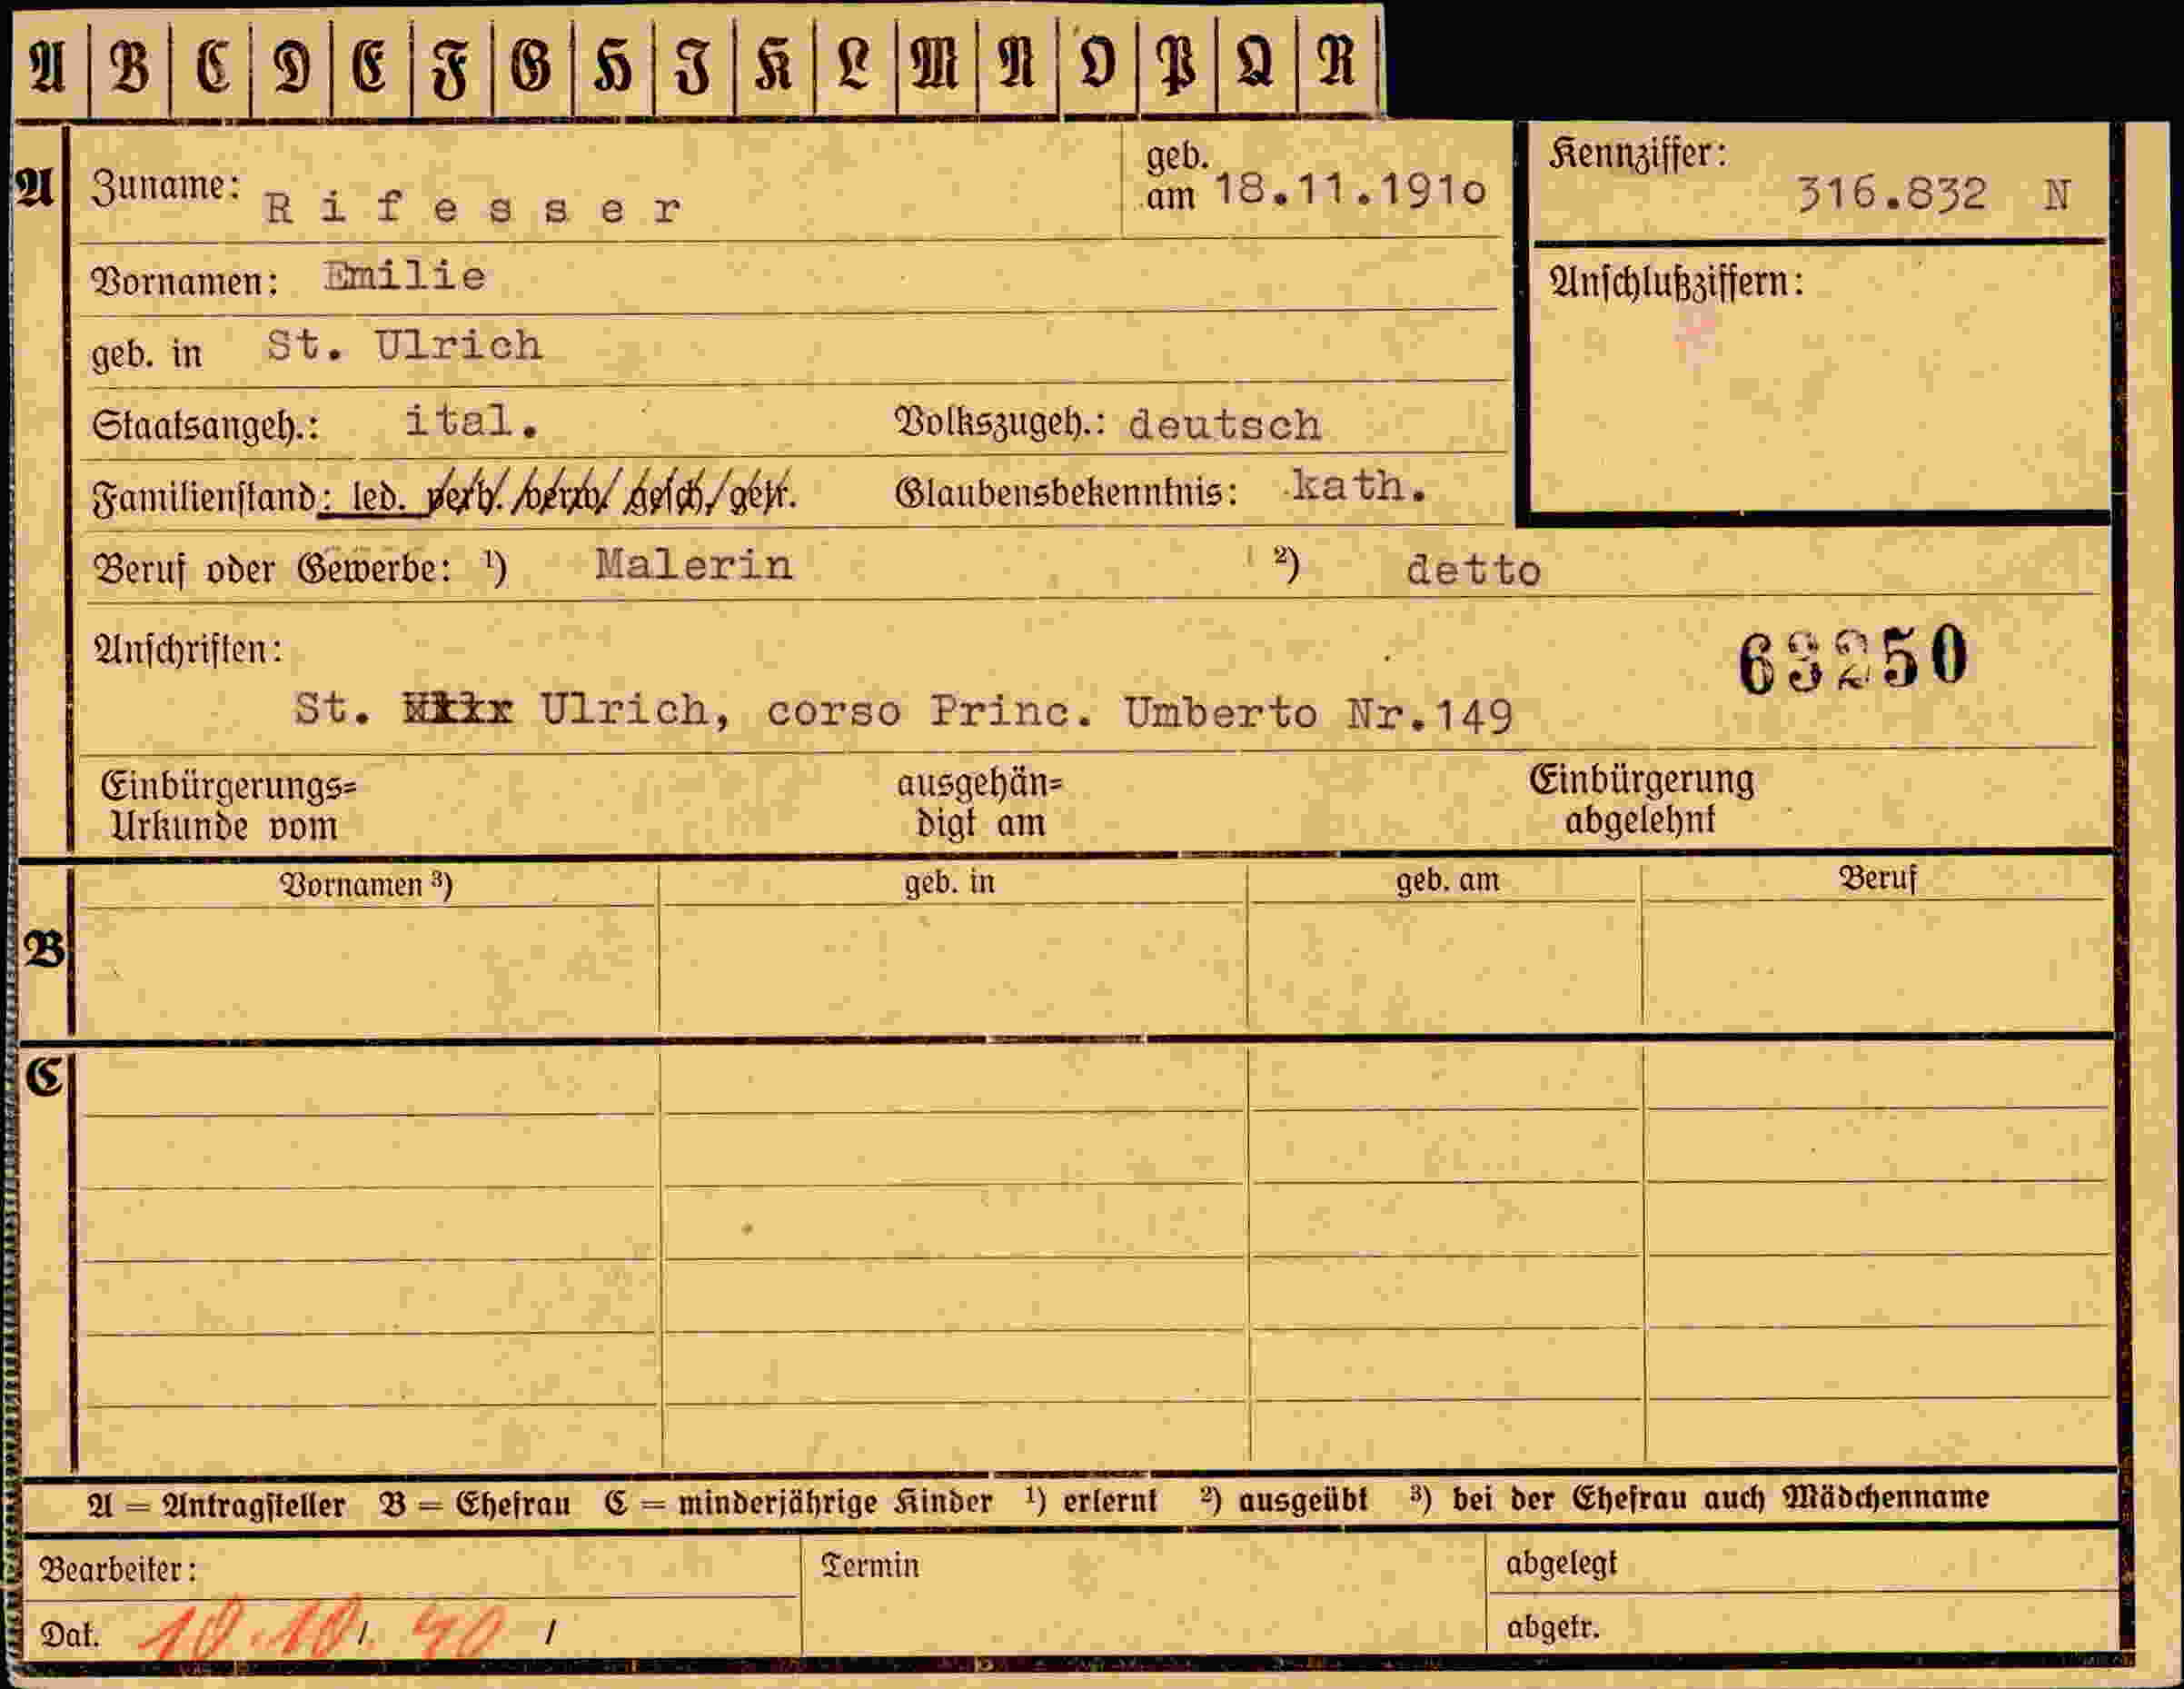 A B C D E F G H I K L M N O P Q R
A Zuname: Rifesser geb. am 18.11.1910 Kennziffer: 316.832 N
Vornamen: Emilie Anschlußziffern:
geb. in St. Ulrich
Staatsangeh.: ital. Volkszugeh.: deutsch
Familienstand: led. verh. verw. gesch. getr. Glaubensbekenntnis: kath.
Beruf oder Gewerbe: ¹) Malerin ²) detto
Anschriften: 63250
St. Ulrich, corso Princ. Umberto Nr.149
Einbürgerungs= ausgehän= Einbürgerung
Urkunde vom digt am abgelehnt
B Vornamen ³) geb. in geb. am Beruf
C
A = Antragsteller B = Ehefrau C = minderjährige Kinder ¹) erlernt ²) ausgeübt ³) bei der Ehefrau auch Mädchenname
Bearbeiter: Termin abgelegt
Dat. 10.10. 40 abgetr.